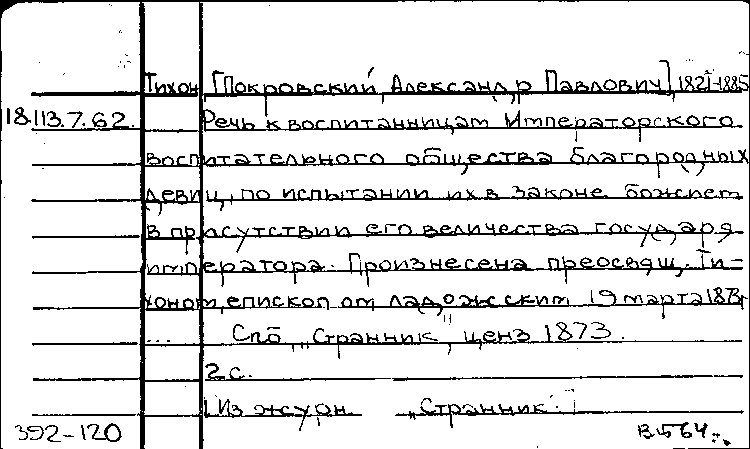 Тихон [Покровский, Александр Павлович], 1821-1885
18.113.7.62. Речь к воспитанницам Императорского
воспитательного общества благородных
девиц, по испытании их в законе божием
в присутствии его величества государя
императора. Произнесена преосвящ. Ти-
хоном, епископом ладожским 19 марта 1873г
... Спб, "Странник", ценз 1873.
2 с.
[Из журн. "Странник".]
392-120 В 564